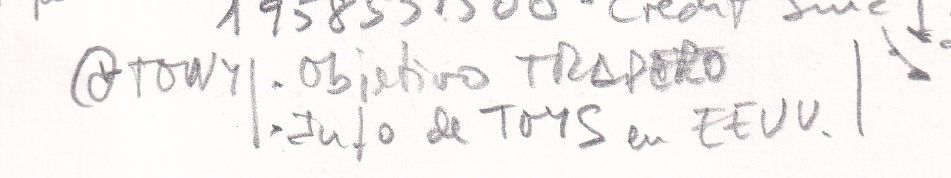 1958531500 Credit Suic
@TONY | · Objetivo TRAPERO |
| · Info de TOYS en EEUU. |